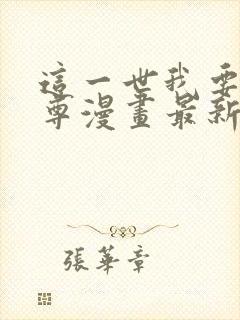 這一世我要
尊漫畫最新
張華章